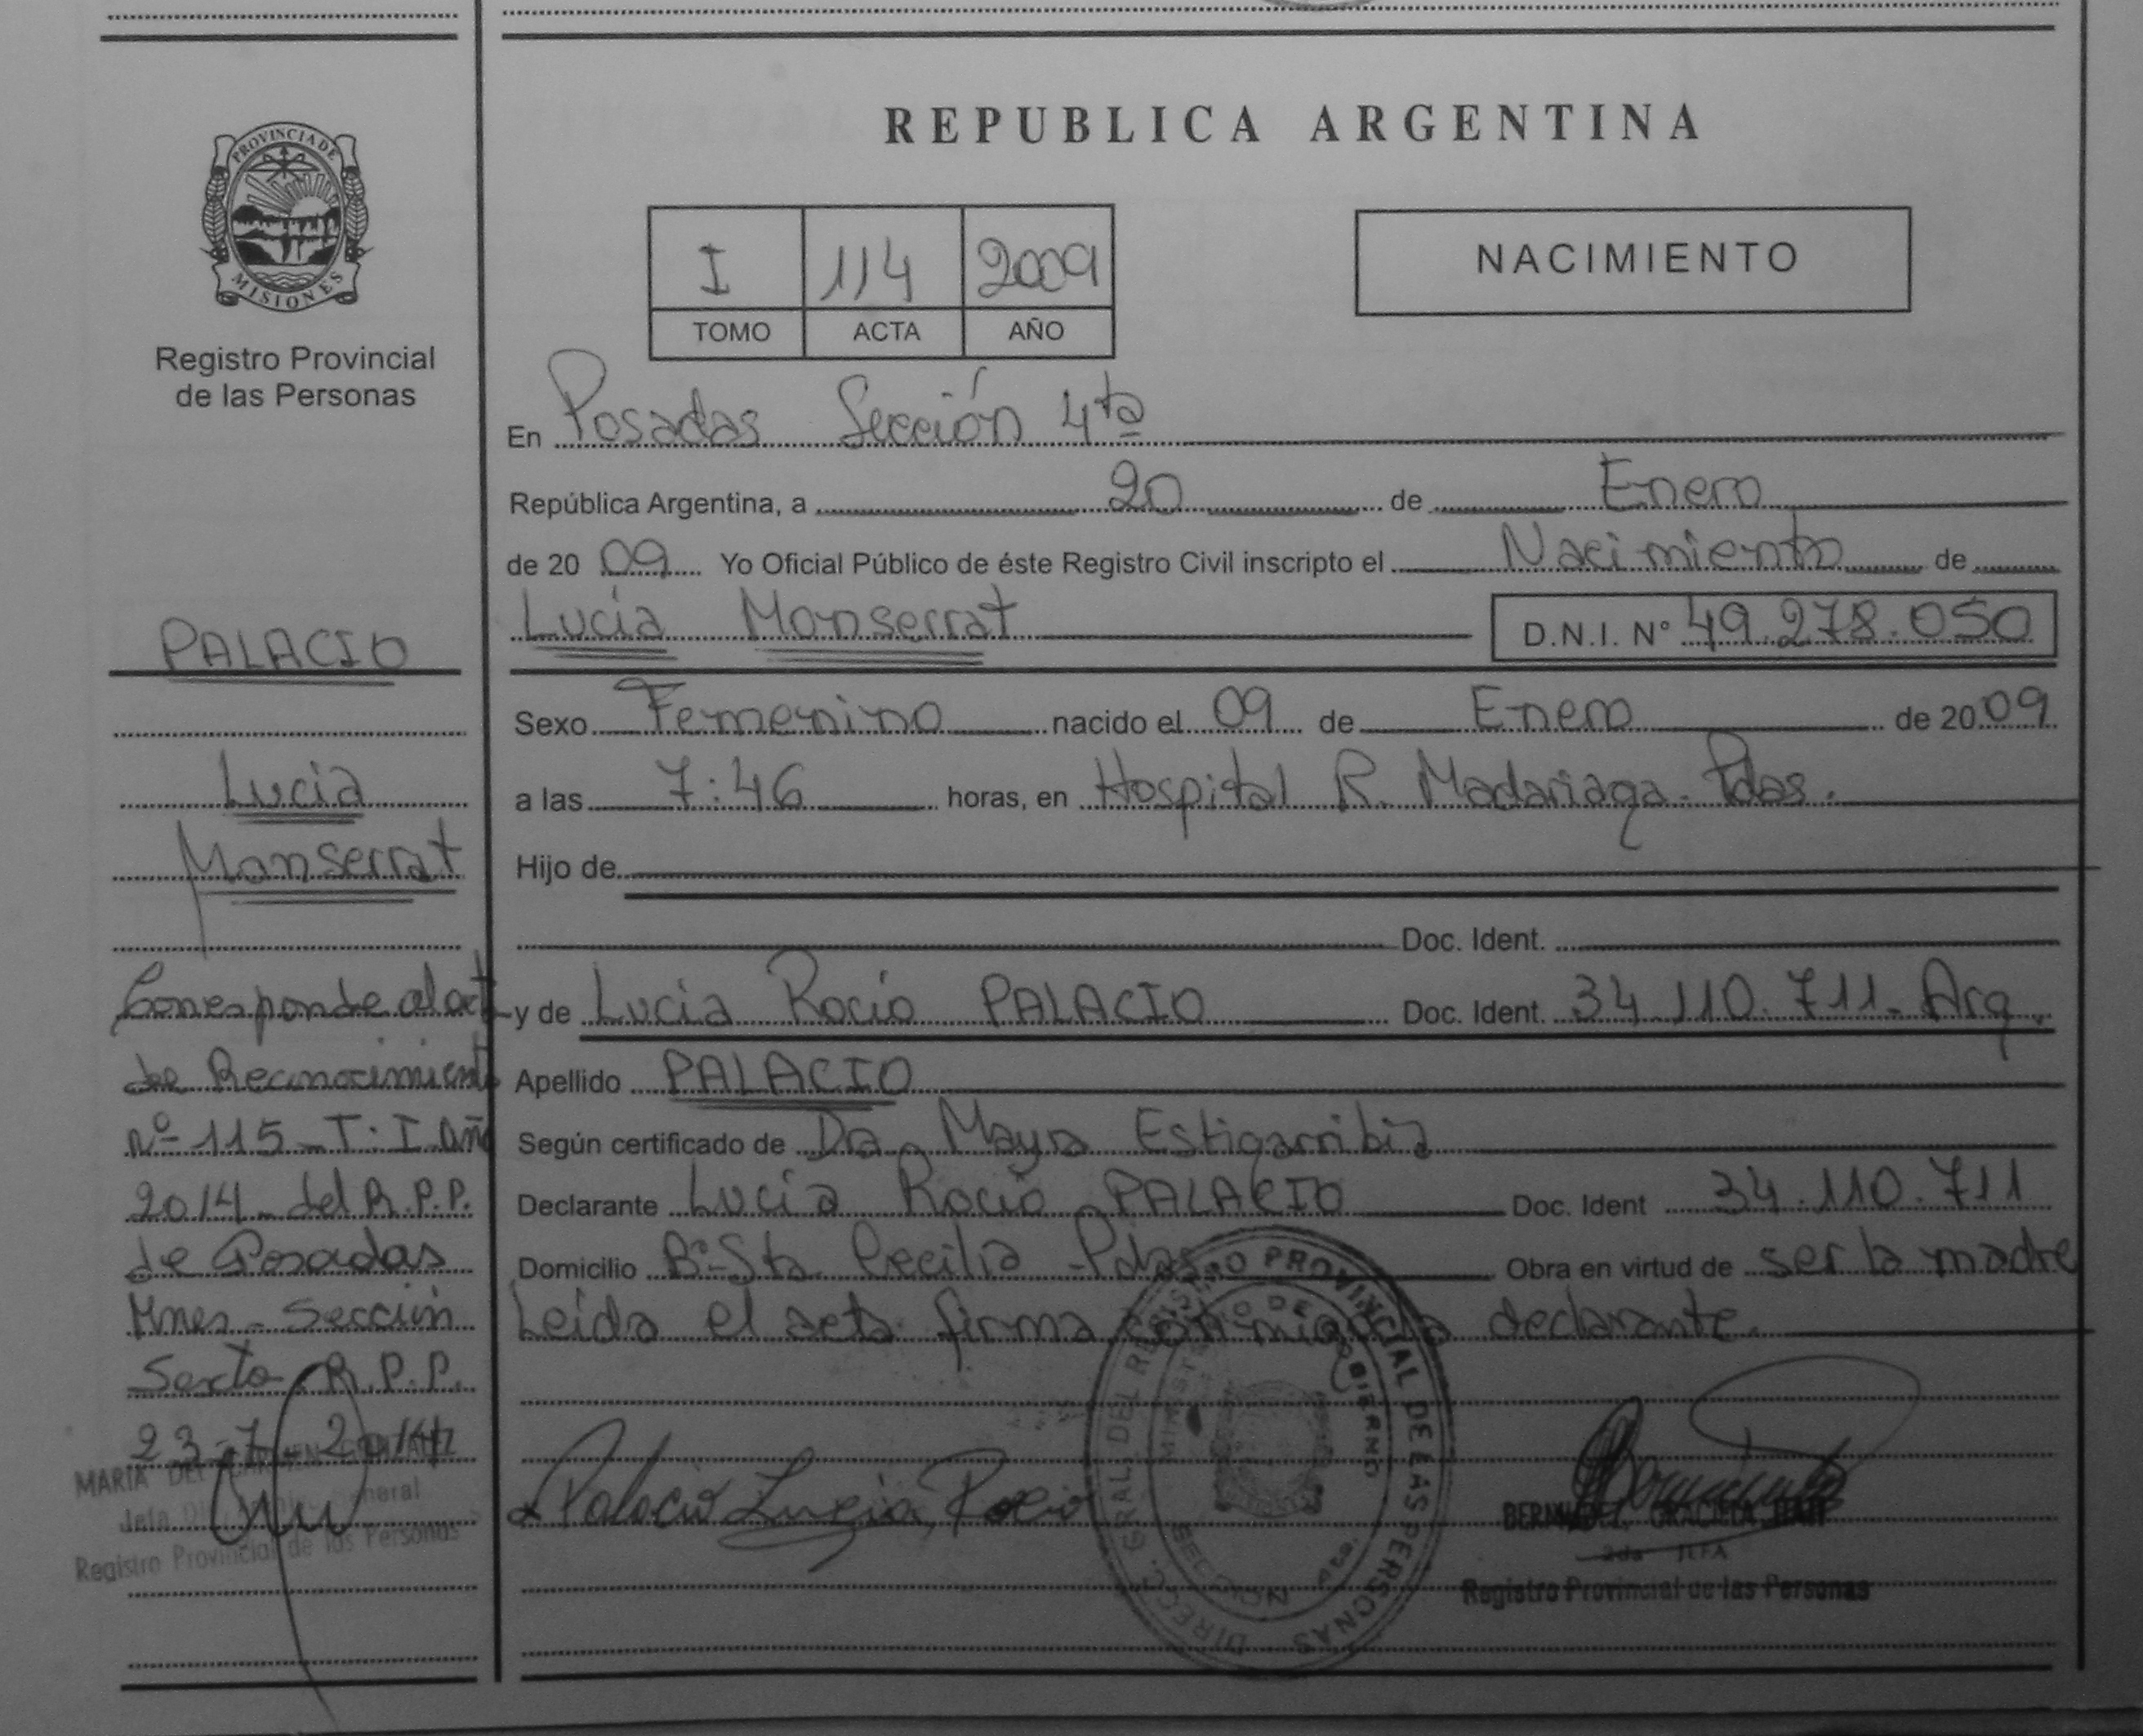 PROVINCIA DE
MISIONES
Registro Provincial
de las Personas
PALACIO
Lucia
Monserrat
Corresponde al act
de Reconocimient
nº 115 - T: I. Año
2014 - del R.P.P.
de Posadas
Mnes - Sección
Sexta R.P.P.
23-7-2014
MARIA DEL CARMEN
Jefa
Registro Provincial de las Personas
REPUBLICA ARGENTINA
I 114 2009
TOMO ACTA AÑO
NACIMIENTO
En Posadas Sección 4ta
República Argentina, a 20 de Enero
de 20 09 Yo Oficial Público de éste Registro Civil inscripto el Nacimiento de
Lucía Monserrat D.N.I. Nº 49.278.050
Sexo Femenino nacido el 09 de Enero de 20 09
a las 7:46 horas, en Hospital R. Madariaga - Pdas.
Hijo de
Doc. Ident.
y de Lucia Rocío PALACIO Doc. Ident. 34.110.711 - Arg.
Apellido PALACIO
Según certificado de Dra. Mayra Estigarribia
Declarante Lucía Rocío PALACIO Doc. Ident 34.110.711
Domicilio Bº Sta Cecilia - Pdas Obra en virtud de ser la madre
Leida el acta firma conmigo la declarante.
Palacio Lucia, Rocio
DIRECC. GRAL. DEL REGISTRO PROVINCIAL DE LAS PERSONAS
MINISTERIO DE GOBIERNO
SECCION 4ta.
GRACIELA
2da JEFA
Registro Provincial de las Personas